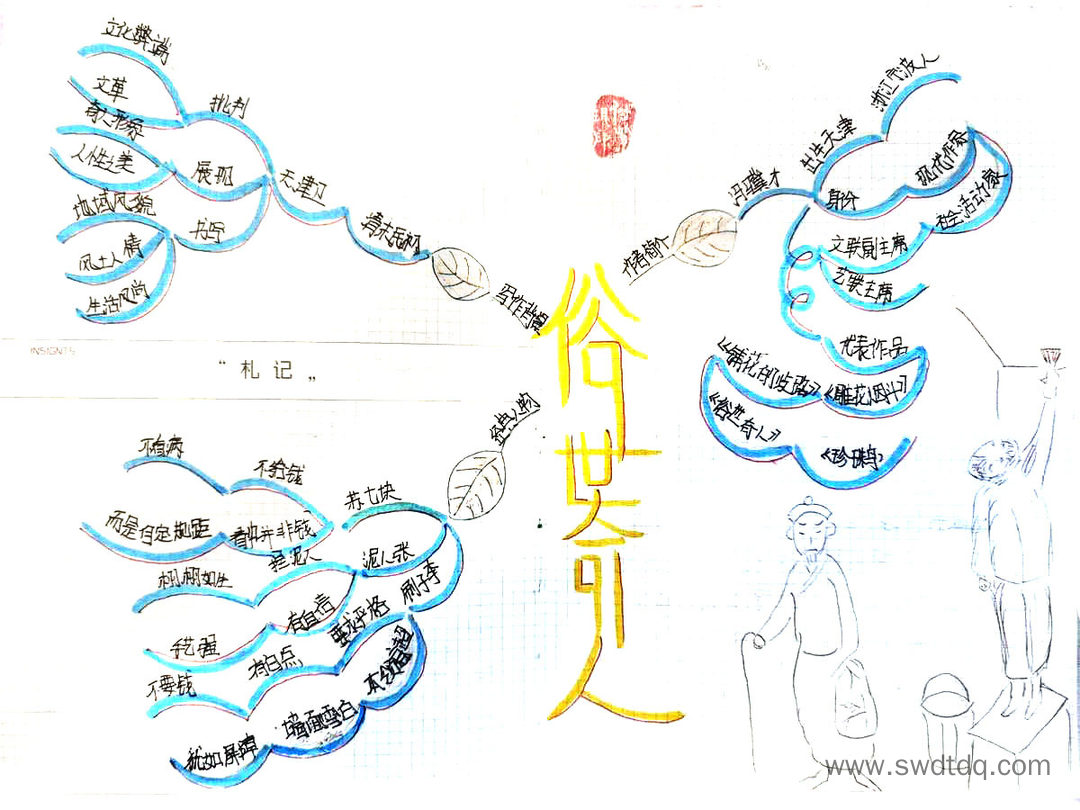 俗世奇人
作者简介
冯骥才
出生天津
浙江宁波人
身份
现代作家
社会活动家
文联副主席
艺联主席
代表作品
《铺花的歧路》
《雕花烟斗》
《俗世奇人》
《珍珠鸟》
写作背景
清末民初
天津卫
批判
文化弊端
文革
展现
奇人形象
人性之美
书写
地域风貌
风土人情
生活风尚
INSIGHTS
“ 札 记 „
经典人物
苏七块
不给钱
不看病
看中并非钱
而是自定规距
泥人张
捏泥人
栩栩如生
有自信
手艺强
刷子李
要求严格
有白点
不要钱
本领高超
墙面雪白
犹如屏障
www.swdtdq.com